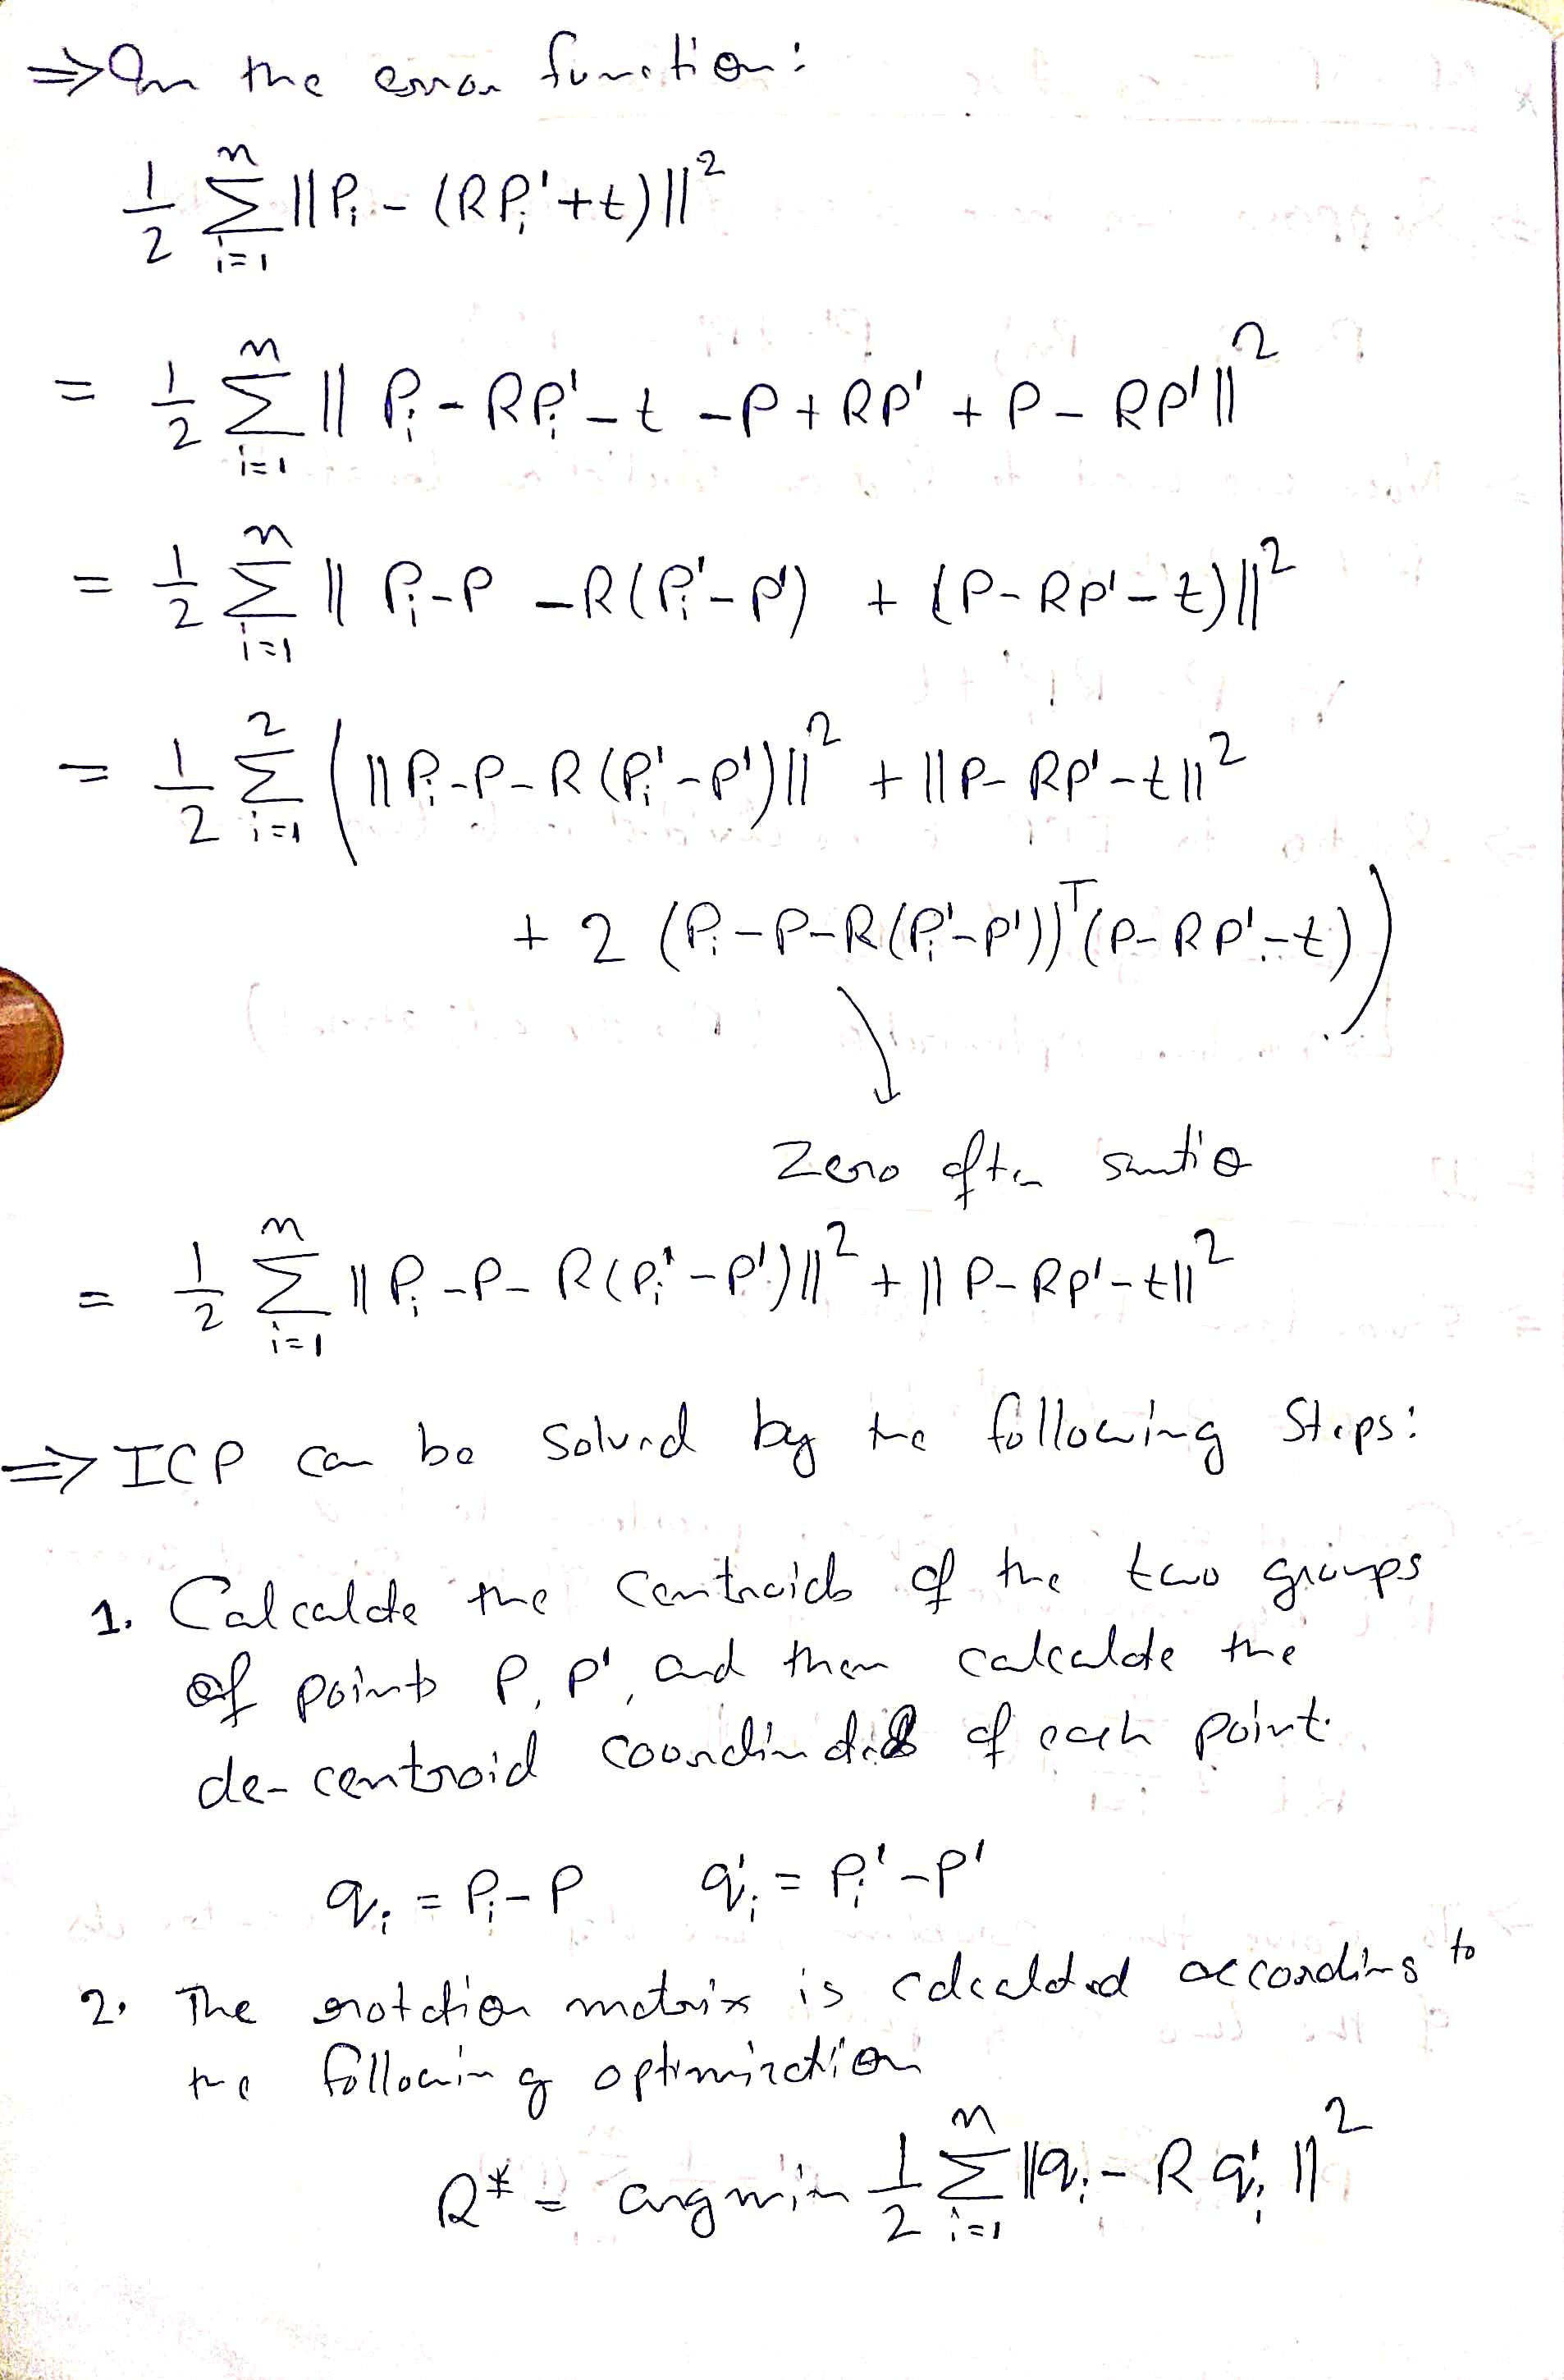 ⇒ In the error function:
1/2 Σ_{i=1}^{n} ||P_i - (RP_i' + t)||²
= 1/2 Σ_{i=1}^{n} || P_i - RP_i' - t - P + RP' + P - RP' ||²
= 1/2 Σ_{i=1}^{n} || P_i - P - R(P_i' - P') + (P - RP' - t)||²
= 1/2 Σ_{i=1}^{2} ( ||P_i - P - R(P_i' - P')||² + ||P - RP' - t||²
+ 2 (P_i - P - R(P_i' - P'))ᵀ(P - RP' - t) )
Zero after
= 1/2 Σ_{i=1}^{n} ||P_i - P - R(P_i' - P')||² + ||P - RP' - t||²
⇒ ICP can be solved by the following Steps:
1. Calculate the centroids of the two groups
of points P, P', and then calculate the
de-centroid coordinates of each point.
q_i = P_i - P   q_i' = P_i' - P'
2. The rotation matrix is calculated according to
the following optimization
R* = argmin 1/2 Σ_{i=1}^{n} ||q_i - R q_i'||²